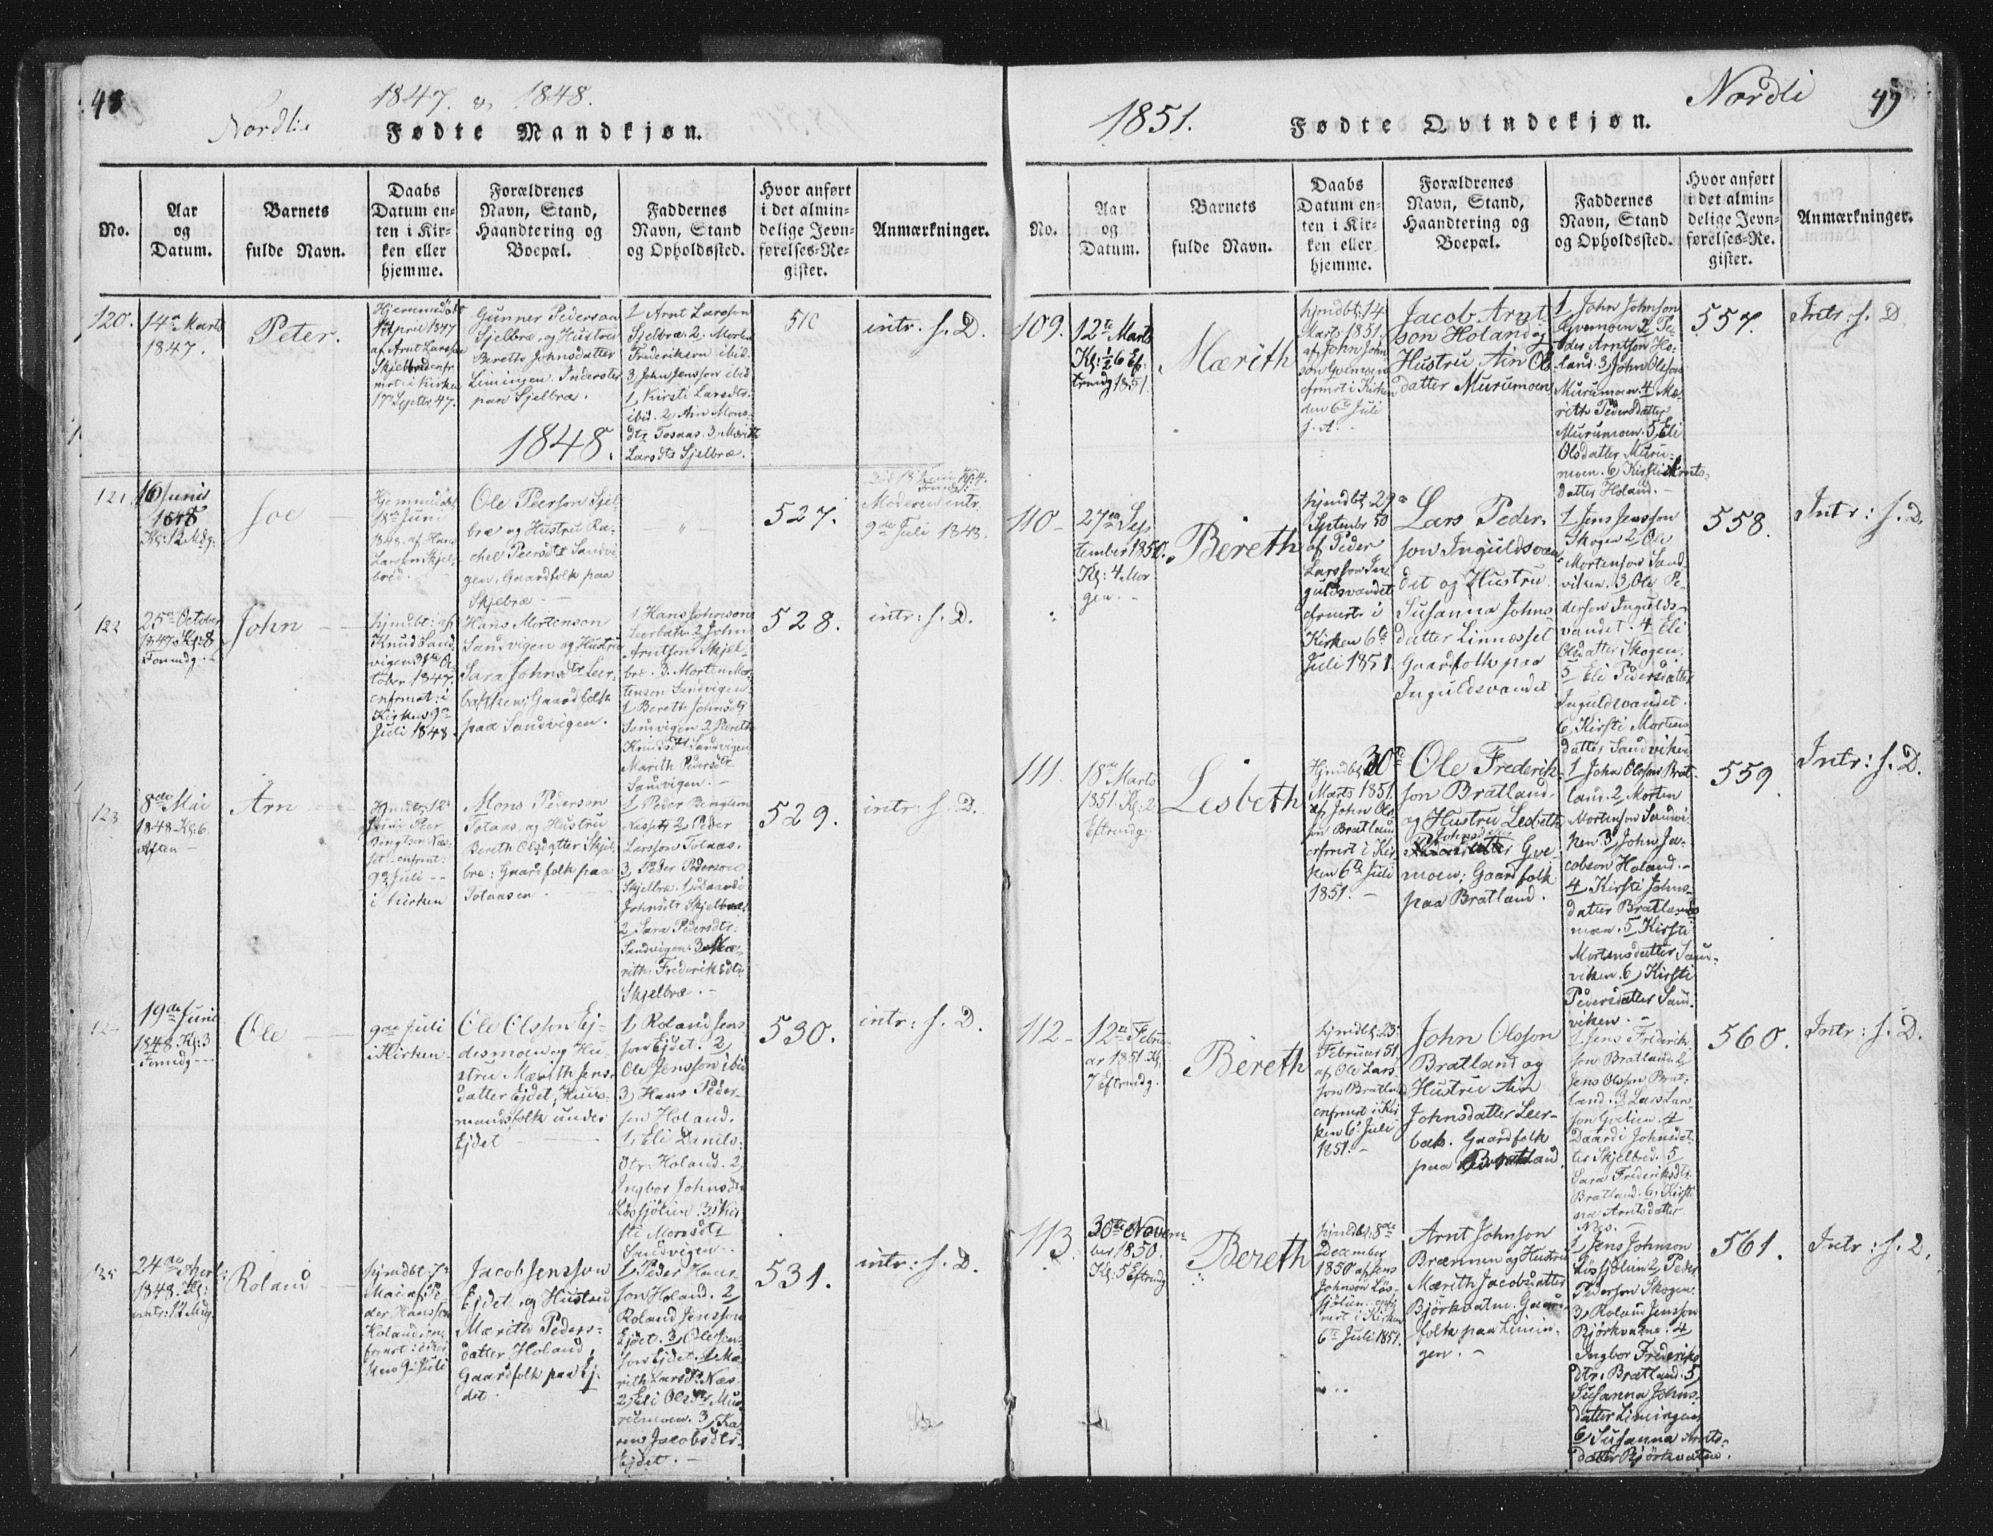 48
Nordlie
1847. & 1848.
Fødte Mandkjøn.
No.
Aar
og
Datum.
Barnets
fulde Navn.
Daabs
Datum en-
ten i Kir-
ken eller
hjemme.
Forældrenes
Navn, Stand,
Haandtering og
Boepæl.
Faddernes
Navn, Stand
og Opholdssted.
Hvor anført
i det almin-
delige Jevn-
førelses-Re-
gister.
Anmærkninger.
120.
14de Marts
1847.
Peter.
Hjemmedøbt
April 1847
af Arnt Larsson
Skjelbred
i Kirken
17 Septer 47.
Gunner Pederson
Sjelbræ, og Hustru
Beretto Johnsdatter
Limingen. Inderster
paa Sjelbræ.
1 Arnt Larsson
Sjelbræ 2, Morten
Frederiksen ibid.
3 John Jensson ibid
1, Kirsti Larsdtr.
ibid. 2 Ane Mons-
dtr Tosaas. 3 Marith
Larsdtr Sjelbræ.
510
intr. f. D.
1848.
121
16 Junii
1848
Kl: 12 Mdg:
Joe
Hjemmedøbt
18de Juni
1848. af Hans
Larsson Skjel-
bred.
Ole Peerson Sjel-
bræ og Hustrue Ra-
chel Peersdtr Sandvi-
gen, Gaardfolk paa
Skjelbræ
527.
Moderen intr.
9de Juli 1848.
122
25de October
1847. Kl: 8
Formdg.
John
hjmdbt: af
Knud Sand-
vigen 31te O-
tober 1847.
i
Kirken 9de
Juli 1848.
Hans Mortenson
Sandvigen og Hustru
Sara Johnsdtr Leer-
bakken; Gaardfolk
paa Sandvigen.
1 Hans Johnson
Leerbak 2 John
Arntson Skjel-
bre. 3. Morten Mor-
tenson Sandvigen
1 Bereth Johnsdtr
Sandvigen 2 Bereth
Knudsdtr Sandvigen
Marith Pedersdtr
Sandvigen.
528.
intr: f. D.
123
8de Mai
1848. Kl: 6.
Aften
Arn
Juni Peer
Bengtson Næs-
set
9de Juli
i Kirken
Mons Pederson
Totaas, og Hustru
Bereth Olsdatter Skjel-
bre: Gaardfolk paa
Totaasen.
1 Peder Bengtson
Næsset 2 Peder
Larsson Totaas.
3, Peder Pederson
Skjelbræ. 1 Daardi
Johnsdtr Skjelbræ
2 Sara Pedersdtr:
Sandvigen. 3 Mæ-
rith Frederiksdtr
Skjelbræ.
529.
intr: f. D.
12
19de Juni
1848. Kl: 3
Formdg
Ole
9de Juli
i Kirken
Ole Olsson Ej-
desmoen og Hu-
stru Mærith Jens-
datter Ejdet, Huus-
mandsfolk under
Ejdet
1, Roland Jens-
son Ejdet. 2,
Ole Jensson ibid
3, Hans Peder-
son Holand.
1, Eli Daniels-
dtr. Holand. 2,
Ingbor Johnsdtr
Løssjølien. 3, Kir-
sti Monsdtr
Sandvigen.
530.
intr: f. D.
125
24de April
1848. Kl:
omtr: 12 Mdg
Roland
hjmdbt: 7de
Mai af Pe-
der Hansson
Holand
i Kir-
ken 9 Juli
Jacob Jensson
Ejdet, og Hustru
Mærith Peders-
datter Holand,
Gaardfolk paa Ej-
det.
1, Peder Hans-
son Holand. 2
Roland Jensson
Ejdet. 3, Ole Jens-
son Ejdet. 1, Mæ-
rith Larsdtr Næs
2, Eli Olsdtr Mu-
rumoen. 3, Ka-
ren Jacobsdtr.
Ejdet.
531.
intr: f. D.
1851.
Fødte Qvindekjøn.
Nordli
49
No.
Aar
og
Datum.
Barnets
fulde Navn.
Daabs
Datum en-
ten i Kir-
ken eller
hjemme.
Forældrenes
Navn, Stand,
Haandtering og
Boepæl.
Faddernes
Navn, Stand
og Opholdssted.
Hvor anført
i det almin-
delige Jevn-
førelses-Re-
gister.
Anmærkninger.
109.
12te Marts
Kl: ½6 Ef-
trmdg 1851.
Mærith
hjmdbt, 14
Marts 1851.
af John John-
son Gvemoen
cfrmrt i Kirken
den 6te Juli
s. a.
Jacob Arnt-
son Holand og
Hustru Ain Ols-
datter Murumoen
1 John Johnson
Gvemoen 2 Pe-
der Arntson Ho-
land. 3 John Olsson
Murumoen 4 Mæ-
rith Pedersdatter
Murumoen. 5, Eli
Olsdatter Muru-
moen. 6 Kirsti Arnts-
datter Holand.
557.
Intr: f. D
110
27de Sep-
tember 1850.
Kl: 4 Mor-
gen.
Bereth
hjmdbt, 29de
Septembr 50
af Peder
Larsson In-
guldsvandet
cfrmrt i
Kirken 6te
Juli 1851.
Lars Peder-
son Inguldsvan-
det og Hustru
Susanna Johns-
datter Linnesset
Gaardfolk paa
Inguldsvandet
1 Jens Jensson
Skogen 2 Ole
Mortenson Sand-
viken. 3, Ole Pe-
derson Ingulds-
vandet. 4 Eli
Olsdatter Skogen.
5 Eli Pedersdatter
Inguldsvandet.
6 Kirsti Mortens-
datter Sandviken
558.
Intr: f. D.
111.
18de Marts
1851. Kl: 2
Eftrmdg.
Lisbeth
Hjmdbt, 30te
Marts 1851.
af John Ols-
son Bratland
cfrmrt i Kir-
ken 6te Juli
1851.
Ole Frederik-
son Bratland
og Hustru Lesbeth
Johnsdatter Gve-
moen; Gaardfolk
paa Bratland.
1 John Olsson Brat-
land. 2 Morten
Mortenson Sandvi-
ken 3 John Ja-
cobson Holand.
4 Kirsti Johns-
datter Bratlands-
moen. 5 Kirsti
Mortensdatter Sand-
viken. 6, Kirsti
Pedersdatter Sand-
viken.
559.
Intr: f. D.
112
12te Febru-
ar 1851. Kl:
7 Eftrmdg.
Bereth
hjmdbt, 23
Februar 51.
af Ole Lars-
son Bratland
cfrmrt i Kir-
ken 6te Juli
1851.
John Olsson
Bratland og
Hustrue Ain
Johnsdatter Leer-
bak. Gaardfolk
paa Bratland.
1 Jens Frederik-
son Bratland. 2
Jens Olsson Brat-
land. 3 Lars Lars-
son Gvelien. 4
Daardi Johnsdat-
ter Skjelbred. 5
Sara Frederiksdtr
Bratland. 6, Kirsti-
na Arntsdatter
Næs.
560.
Intr: f. D.
113
30te Novem-
ber 1850.
Kl: 5 Eftrmdg
Bereth
hjmdbt, 8de
December
1850 af Jens
Johnson Løs-
sjølien. cfr-
mrt i Kirken
6te Juli 1851.
Arnt Johnson
Brænnen og Hustru
Mærith Jacobsdatter
Björkvatne. Gaard-
folk paa Limin-
gen.
1, Jens Johnson
Løssjølien 2, Peder
Pederson Skogen.
3, Roland Jensson
Björkvatne. 4
Ingbor Frederiks-
dtr. Bratland. 5
Susanna Johns-
datter Limingen
6, Susanna Arnts-
datter Björkvatne.
561.
Intr: f. D.